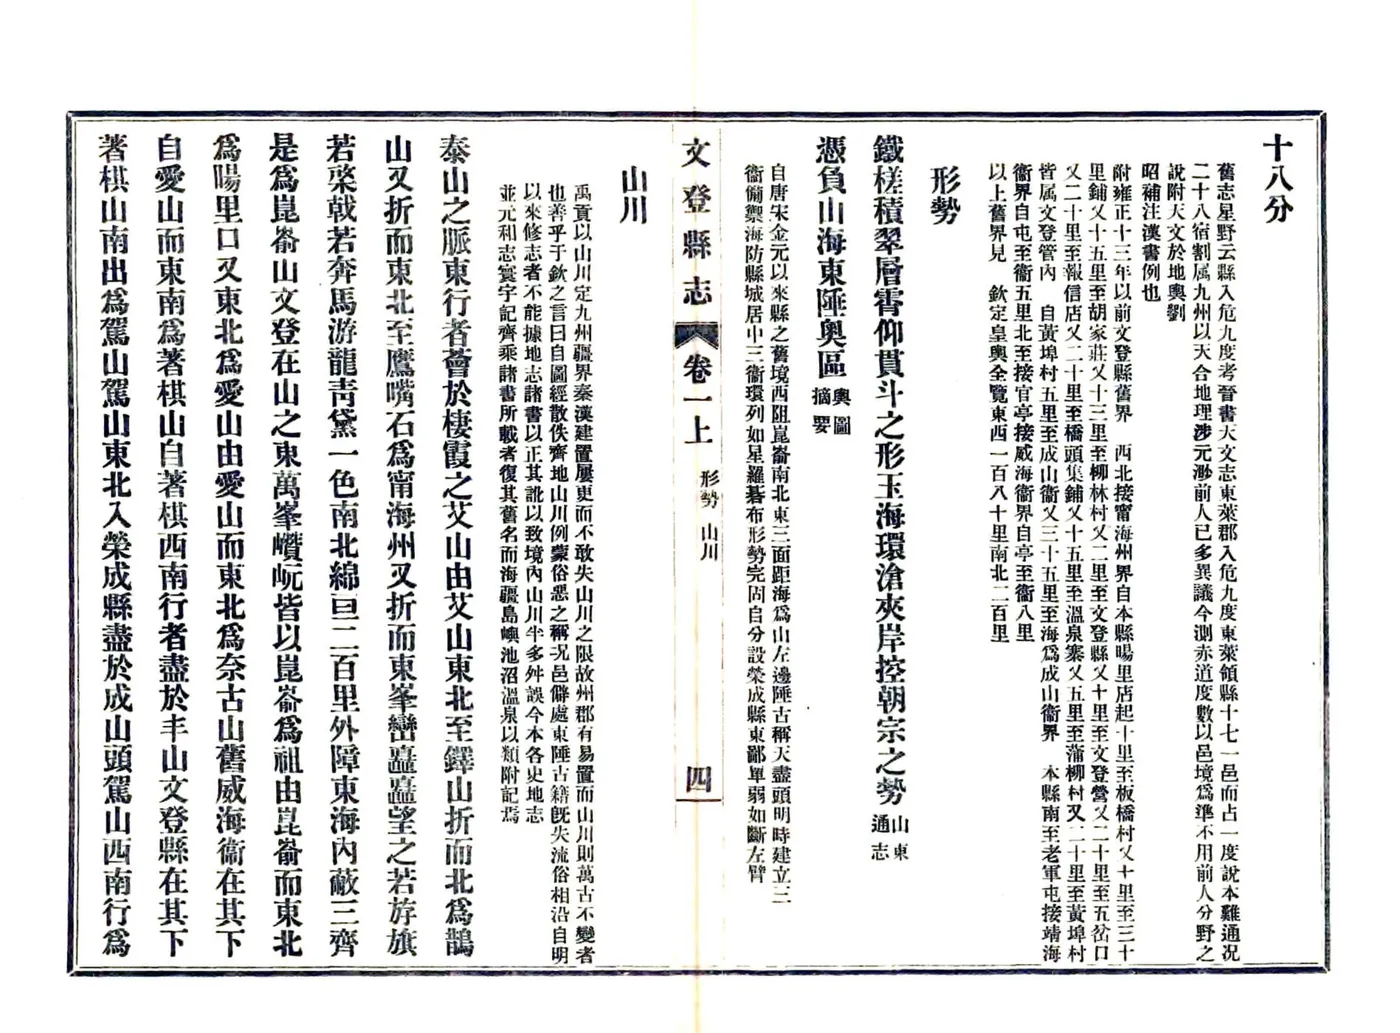 十八分
舊志星野云縣入危九度考晉書天文志東萊郡入危九度東萊領縣十七一邑而占一度說本難通況
二十八宿割属九州以天合地理涉元渺前人已多異議今測赤道度數以邑境爲準不用前人分野之
說附天文於地輿劉
昭補注漢書例也
附雍正十三年以前文登縣舊界　西北接甯海州界自本縣暘里店起十里至板橋村又十里至三十
里鋪又十五里至胡家莊又十三里至柳林村又二里至文登縣又十里至文登營又二十里至五岔口
又二十里至報信店又二十里至橋頭集鋪又十五里至溫泉寨又五里至蒲柳村又二十里至黃埠村
皆属文登管內　自黃埠村五里至成山衞又三十五里至海爲成山衞界　本縣南至老軍屯接靖海
衞界自屯至衞五里北至接官亭接威海衞界自亭至衞八里
以上舊界見　欽定皇輿全覽東西一百八十里南北二百里
形勢
鐵槎積翠層霄仰貫斗之形玉海環滄夾岸控朝宗之勢山東通志
憑負山海東陲奧區輿圖摘要
自唐宋金元以來縣之舊境西阻崑崙南北東三面距海爲山左邊陲古稱天盡頭明時建立三
衞備禦海防縣城居中三衞環列如星羅碁布形勢完固自分設榮成縣東鄙單弱如斷左臂
文登縣志　卷一上　形勢　山川　四
山川
禹貢以山川定九州疆界秦漢建置屢更而不敢失山川之限故州郡有易置而山川則萬古不變者
也善乎于欽之言曰自圖經散佚齊地山川例蒙俗惡之稱况邑僻處東陲古籍旣失流俗相沿自明
以來修志者不能據地志諸書以正其訛以致境內山川半多舛誤今本各史地志
並元和志寰宇記齊乘諸書所載者復其舊名而海疆島嶼池沼溫泉以類附記焉
泰山之脈東行者薈於棲霞之艾山由艾山東北至鐸山折而北爲鵲
山又折而東北至鷹嘴石爲甯海州又折而東峯巒矗矗望之若斿旗
若棨戟若奔馬游龍靑黛一色南北綿亘二百里外障東海內蔽三齊
是爲崑崙山文登在山之東萬峯巑岏皆以崑崙爲祖由崑崙而東北
爲暘里口又東北爲愛山由愛山而東北爲奈古山舊威海衞在其下
自愛山而東南爲著棋山自著棋西南行者盡於丰山文登縣在其下
著棋山南出爲駕山駕山東北入榮成縣盡於成山頭駕山西南行爲